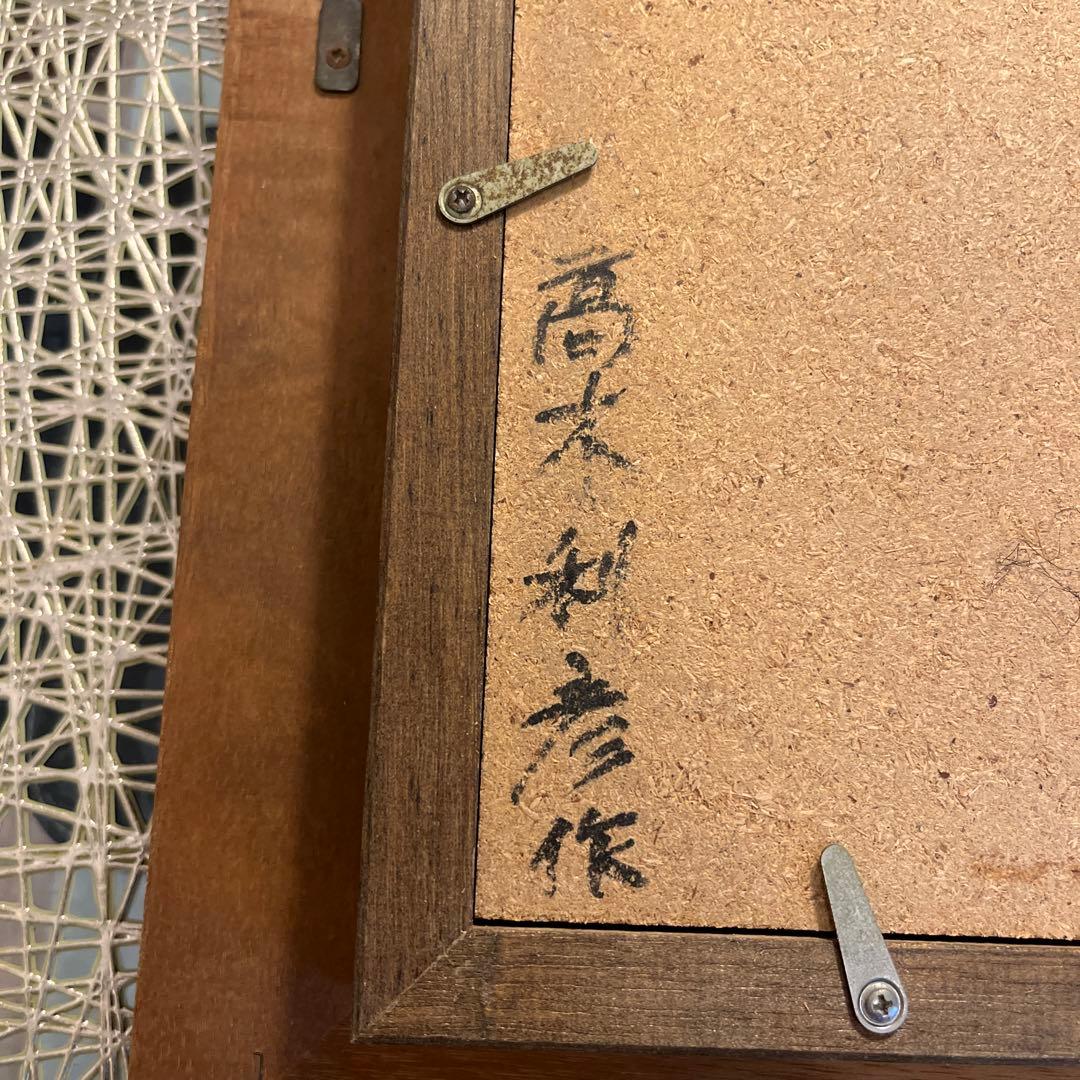 高木利彦作